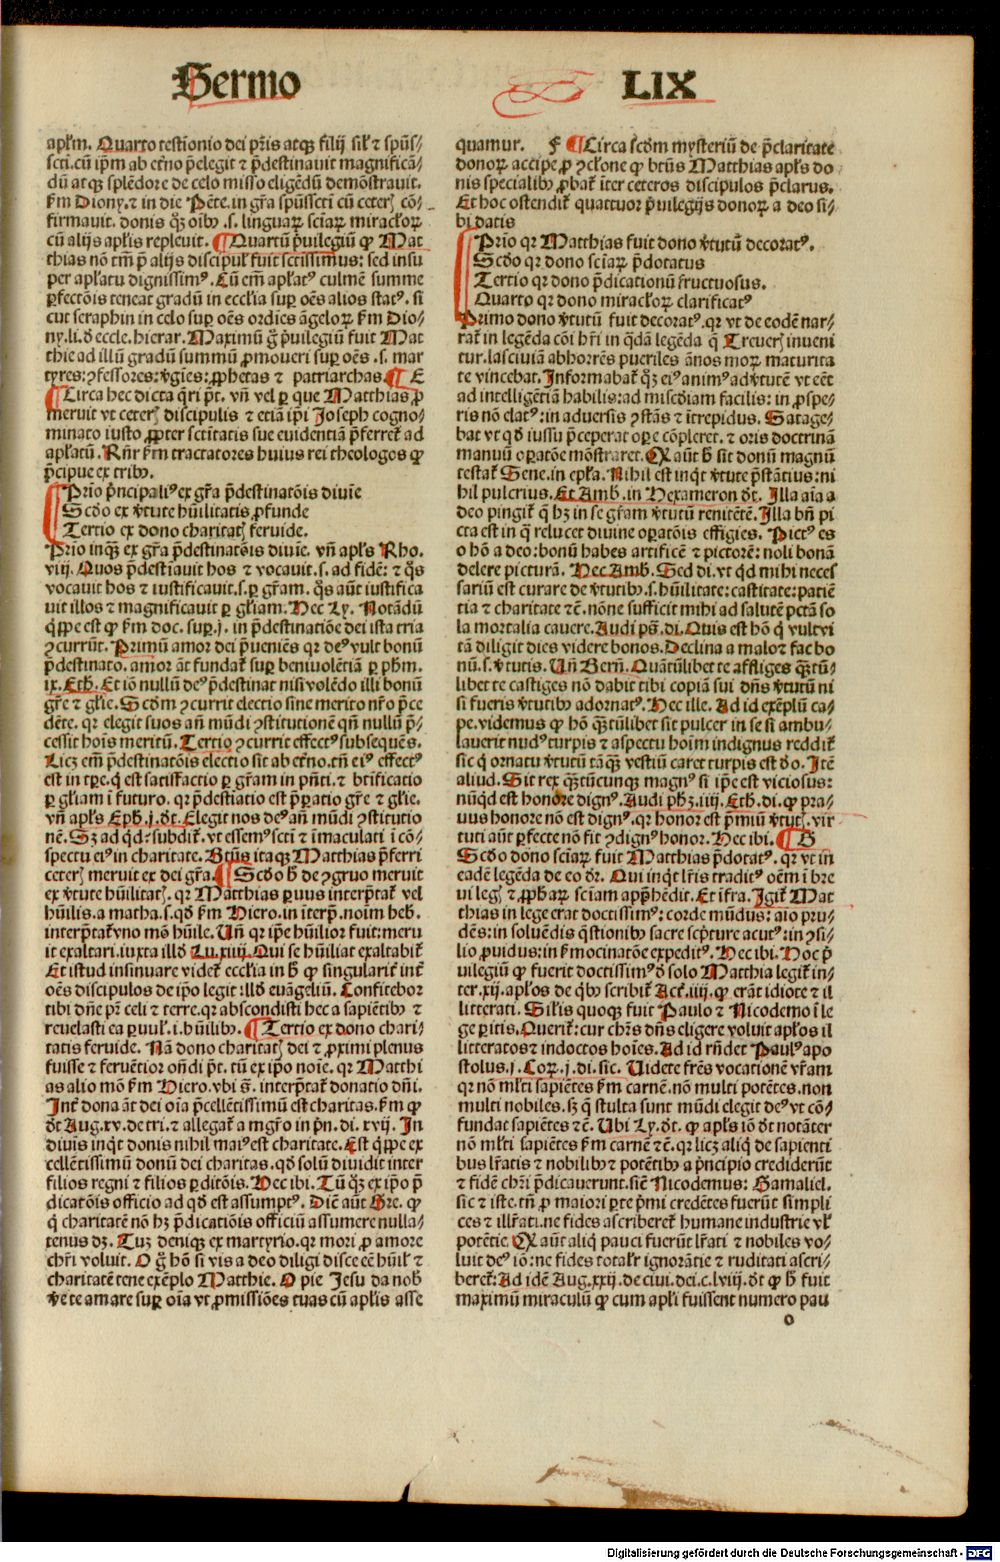 Sermo LIX
apl̃m. Quarto testĩonio dei pr̃is atqꝫ filij sil̃r ⁊ spũs/
scti. cũ ip̃m ab etr̃no p̃elegit ⁊ p̃destinavit magnificã/
dũ atqꝫ splẽdore de celo misso eligẽdũ demõstrauit.
ẜm Diony. ⁊ in die Pẽte. in gr̃a spũsscti cũ ceter̃ cõ/
firmauit. donis qꝫ oĩbꝫ .s. linguaꝝ sciaꝝ miracl̃oꝝ
cũ alijs apl̃is repleuit. ¶ Quartũ p̃uilegiũ ꝙ Mat
thias nõ tm̃ p̃ alijs discipul̃ fuit sctissimus: sed insu
per apl̃atu dignissimꝰ. Cũ em̃ apl̃atꝰ culmẽ summe
ꝑfectõis teneat gradũ in eccl̃ia suꝑ oẽs alios statꝰ. si
cut seraphin in celo suꝑ oẽs ordĩes ãgeloꝝ ẜm Dio/
ny. li. ð eccle. hierar. Maximũ g̃ p̃uilegiũ fuit Mat
thie ad illũ gradũ summũ ꝓmoueri suꝑ oẽs .s. mar
tyres: ꝯfessores: ṽgĩes: ꝓphetas ⁊ patriarchas. ¶ E
¶ Circa hec dicta q̃ri p̃t. vñ vel ꝑ que Matthias ꝓ
meruit vt ceter̃ discipulis ⁊ etiã ip̃i Joseph cogno/
minato iusto ꝓpter sctitatis sue euidentiã p̃ferret̃ ad
apl̃atũ. Rñr̃ ẜm tractatores huius rei theologos ꝙ
p̃cipue ex tribꝫ.
Prĩo p̃ncipaliꝰ ex gr̃a p̃destinatõis diuĩe
Scðo ex ṽtute hũilitatis ꝓfunde
Tertio ex dono charitat̃ feruide.
Prĩo inqꝫ ex gr̃a p̃destinatõis diuĩe. vñ apl̃s Rho.
viij. Quos p̃destĩauit hos ⁊ vocauit .s. ad fidẽ: ⁊ q̃s
vocauit hos ⁊ iustificauit .s. ꝑ gr̃am. q̃s aũt iustifica
uit illos ⁊ magnificauit ꝑ gl̃iam. Hec Ly. Notãdũ
q̃ꝑpe est ꝙ ẜm doc. suꝑ .j. in p̃destinatiõe dei ista tria
ꝯcurrũt. Primũ amor dei p̃ueniẽs qr̃ deꝰ vult bonũ
p̃destinato. amor ãt fundat̃ suꝑ beniuolẽtiã ꝑ ph̃m.
ix. Eth. Et iõ nullũ deꝰ p̃destinat nisi volẽdo illi bonũ
gr̃e ⁊ gl̃ie. Scðm ꝯcurrit electio sine merito nr̃o p̃ce
dẽte. qr̃ elegit suos añ mũdi ꝯstitutionẽ qñ nullũ p̃/
cessit hoĩs meritũ. Tertio ꝯcurrit effectꝰ subsequẽs.
Licꝫ em̃ p̃destinatõis electio sit ab etr̃no. tñ eiꝰ effectꝰ
est in tꝑe. q̃ est satisfactio ꝑ gr̃am in p̃ñti. ⁊ btĩficatio
ꝑ gl̃iam ĩ futuro. qr̃ p̃destĩatio est p̃ꝑatio gr̃e ⁊ gl̃ie.
vñ apl̃s Eph. j. ðt. Elegit nos deꝰ añ mũdi ꝯstitutio
nẽ. Sꝫ ad qd̃: subdit̃. vt essemꝰ sctĩ ⁊ ĩmaculati ĩ cõ/
spectu eiꝰ in charitate. Btũs itaqꝫ Matthias p̃ferri
ceter̃ meruit ex dei gr̃a. ¶ Scðo h̃ de ꝯgruo meruit
ex ṽtute hũilitat̃. qr̃ Matthias ꝑuus interp̃tat̃ vel
hũilis. a matha .s. qð ẜm Hiero. in ĩterp̃. noĩm heb.
interp̃tat̃ vno mõ hũile. Uñ qr̃ ip̃e hũilior fuit: meru
it exaltari. iuxta illð Lu. xiiij. Qui se hũiliat exaltabit̃
Et istud insinuare videt̃ eccl̃ia in h̃ ꝙ singularit̃ int̃
oẽs discipulos de ip̃o legit: illð euãgeliũ. Confitebor
tibi dñe pr̃ celi ⁊ terre. qr̃ abscondisti hec a sapiẽtibꝫ ⁊
reuelasti ea ꝑuul̃. i. hũilibꝫ. ¶ Tertio ex dono chari/
tatis feruide. Nã dono charitat̃ dei ⁊ ꝓximi plenus
fuisse ⁊ feruẽtior oñdi p̃t. tũ ex ip̃o noĩe. qr̃ Matthi
as alio mõ ẜm Hiero. vbi s̃. interp̃tat̃ donatio dñi.
Int̃ dona ãt dei oĩa p̃cellẽtissimũ est charitas. ẜm ꝙ
ðt Aug. xv. de tri. ⁊ allegat̃ a mg̃ro in p̃n. di. xvij. In
diuĩs inqͥt donis nihil maiꝰ est charitate. Est q̃ꝑpe ex
cellẽtissimũ donũ dei charitas. qð solũ diuidit inter
filios regni ⁊ filios ꝑditõis. Hec ibi. Tũ qꝫ ex ip̃o p̃
dicatõis officio ad qð est assumptꝰ. Diẽ aũt Gre. ꝙ
q̃ charitatẽ nõ hꝫ p̃dicatiõis officiũ assumere nulla/
tenus dꝫ. Tuꝫ deniqꝫ ex martyrio. qr̃ mori ꝓ amore
chr̃i voluit. O g̃ hõ si vis a deo diligi disce eẽ hũil̃ ⁊
charitatẽ tene exẽplo Matthie. O pie Jesu da nob̃
ṽe te amare suꝑ oĩa vt ꝓmissiões tuas cũ apl̃is asse
quamur. F ¶ Circa scðm mysteriũ de p̃claritate
donoꝝ accipe ꝓ ꝯclone ꝙ btũs Matthias apl̃s do
nis specialibꝫ ꝓbat̃ ĩter ceteros discipulos p̃clarus.
Et hoc ostendit̃ quattuor p̃uilegijs donoꝝ a deo si/
bi datis
Prĩo qr̃ Matthias fuit dono ṽtutũ decoratꝰ.
Scðo qr̃ dono sciaꝝ p̃dotatus
Tertio qr̃ dono p̃dicationũ fructuosus.
Quarto qr̃ dono miracl̃oꝝ clarificatꝰ
Primo dono ṽtutũ fuit decoratꝰ. qr̃ vt de eodẽ nar/
rat̃ in legẽda cõi h̃ri in q̃dã legẽda q̃ Treuer̃ inueni
tur. lasciuiã abhorrẽs pueriles ãnos moꝝ maturita
te vincebat. Informabat̃ qꝫ eiꝰ animꝰ ad ṽtutẽ vt eẽt
ad intelligẽtiã habilis: ad misc̃diam facilis: in ꝓspe/
ris nõ elatꝰ: in aduersis ꝯstãs ⁊ ĩtrepidus. Satage/
bat vt qð iussu p̃ceperat oꝑe cõpleret. ⁊ oris doctrinã
manuũ oꝑatõe mõstraret. Qꝫ aũt h̃ sit donũ magnũ
testat̃ Sene. in epl̃a. Nihil est inqͥt ṽtute p̃stãtius: ni
hil pulcrius. Et Amb. in Hexameron ðt. Illa aĩa a
deo pingit̃ q̃ hꝫ in se gr̃am ṽtutũ renitẽtẽ. Illa bñ pi
cta est in q̃ relucet diuine oꝑatõis effigies. Pictꝰ es
o hõ a deo: bonũ habes artificẽ ⁊ pictorẽ: noli bonã
delere picturã. Hec Amb. Sed di. vt qd̃ mihi neces
sariũ est curare de ṽtutibꝫ .s. hũilitate: castitate: patiẽ
tia ⁊ charitate ⁊c̃. nõne sufficit mihi ad salutẽ pctã so
la mortalia cauere. Audi ps̃. di. Quis est hõ q̃ vult vi
tã diligit dies videre bonos. Declina a malo ⁊ fac bo
nũ .s. ṽtutis. Uñ Bern̄. Quãtũlibet te affliges q̃ꝫtũ/
libet te castiges nõ dabit tibi copiã sui dñs ṽtutũ ni
si fueris ṽtutibꝫ adornatꝰ. Hec ille. Ad id exẽplũ ca/
pe. videmus ꝙ hõ q̃ꝫtũlibet sit pulcer in se si ambu/
lauerit nudꝰ turpis ⁊ aspectu hoĩm indignus reddit̃
sic q̃ ornatu ṽtutũ tãqꝫ vestiũ caret turpis est ðo. Itẽ
aliud. Sit rex q̃ꝫtũcunqꝫ magnꝰ si ip̃e est viciosus:
nũqd̃ est honore dignꝰ. Audi ph̃ꝫ. iiij. Eth. di. ꝙ pra/
uus honore nõ est dignꝰ. qr̃ honor est p̃miũ ṽtut̃. vir
tuti aũt ꝑfecte nõ fit ꝯdignꝰ honor. Hec ibi. ¶ G
Scðo dono sciaꝝ fuit Matthias p̃dotatꝰ. qr̃ vt in
eadẽ legẽda de eo ðr̃. Qui inqͥt lr̃is traditꝰ oẽm ĩ bre
ui leg̃ ⁊ ꝓphaꝝ sciam app̃hẽdit. Et ĩfra. Igit̃ Mat
thias in lege erat doctissimꝰ: corde mũdus: aĩo pru/
dẽs: in soluẽdis q̃stionibꝫ sacre sc̃pture acutꝰ: in ꝯsi/
lio ꝓuidus: in ẜmocinatõe expeditꝰ. Hec ibi. Hoc p̃
uilegiũ ꝙ fuerit doctissimꝰ ð solo Matthia legit̃ in/
ter .xij. apl̃os de q̃bꝫ scribit̃ Act̃. iiij. ꝙ erãt idiote ⁊ il
litterati. Sil̃is quoqꝫ fuit Paulo ⁊ Nicodemo ĩ le
ge ꝑitis. Querit̃: cur chr̃s dñs eligere voluit apl̃os il
litteratos ⁊ indoctos hoĩes. Ad id rñdet Paulꝰ apo
stolus .j. Coꝝ. j. di. sic. Uidete fr̃es vocationẽ vr̃am
qr̃ non ml̃ti sapiẽtes ẜm carnẽ. nõ multi potẽtes. non
multi nobiles. sꝫ q̃ stulta sunt mũdi elegit deꝰ vt cõ/
fundat sapiẽtes ⁊c̃. Ubi Ly. ðt. ꝙ apl̃s iõ ðt notãter
nõ ml̃ti sapiẽtes ẜm carnẽ ⁊c̃. qr̃ licꝫ aliq̃ de sapienti
bus lr̃atis ⁊ nobilibꝫ ⁊ potẽtibꝫ a p̃ncipio crediderũt
⁊ fidẽ chr̃i p̃dicauerunt. sicẽ Nicodemus: Gamaliel.
sic ⁊ iste. tñ ꝓ maiori ꝑte p̃mi credẽtes fuerũt simpli
ces ⁊ illr̃ati. ne fides ascriberet̃ humane industrie vl̃
potẽtie. Qꝫ aũt aliq̃ pauci fuerũt lr̃ati ⁊ nobiles vo/
luit deꝰ iõ: ne fides totalr̃ ignorãtie ⁊ ruditati ascri/
beret̃: Ad idẽ Aug. xxij. de ciui. dei. c. lviij. ðt ꝙ h̃ fuit
maximũ miraculũ ꝙ cum apl̃i fuissent numero pau
o
Digitalisierung gefördert durch die Deutsche Forschungsgemeinschaft - DFG